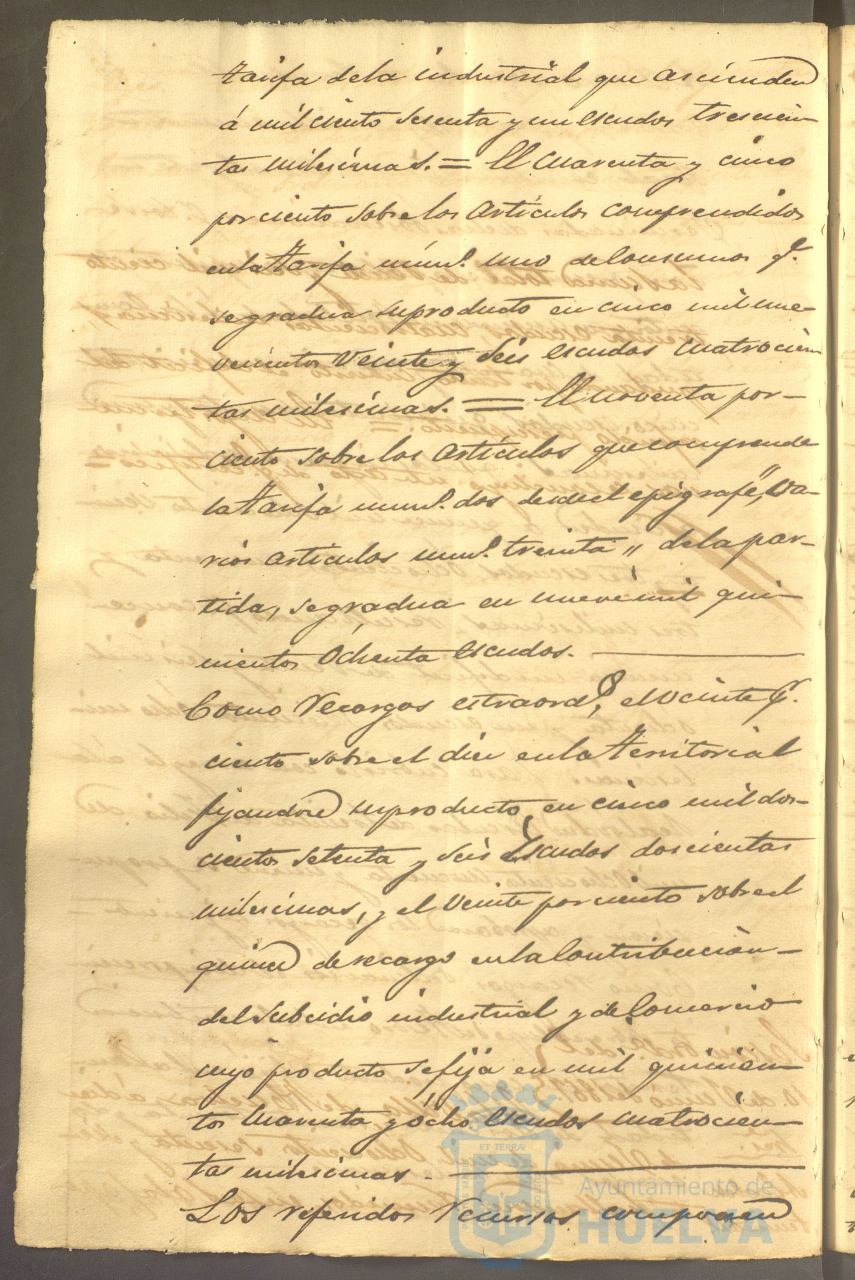 tarifa dela industrial que ascienden
á mil ciento sesenta y un escudos trescien-
tas milesimas. = El cuarenta y cinco
por ciento sobre los articulos comprendidos
enla tarifa núm.º uno de Consumos q.e
se gradua su producto en cinco mil nue-
vecientos veinte y seis escudos cuatrocien-
tas milesimas. = El noventa por-
ciento sobre los articulos que comprende
la tarifa num.º dos desde el epigrafe "va-
rios articulos num.º treinta" dela par-
tida, se gradua en nueve mil qui-
nientos ochenta escudos.
Como recargos estraord.os, el veinte p.r
ciento sobre el diez enla territorial
fijandose su producto en cinco mil dos-
cientos setenta y seis Escudos doscientas
milesimas, y el veinte por ciento sobre el
quince de recargo enla Contribución-
del subsidio industrial y de Comercio
cuyo producto se fija en mil quinien-
tos cuarenta y ocho escudos cuatrocien-
tas milesimas.
Los referidos recursos componen
ET TERRÆ
Ayuntamiento de
HUELVA